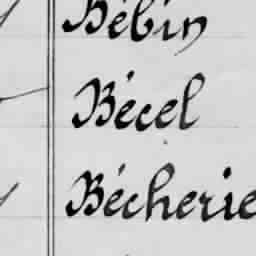 Bébin
Bécel
Bécherie